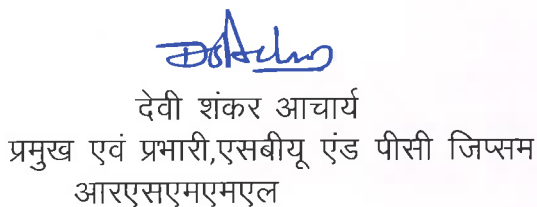 देवी शंकर आचार्य
प्रमुख एवं प्रभारी,एसबीयू एंड पीसी जिप्सम
आरएसएमएमएल